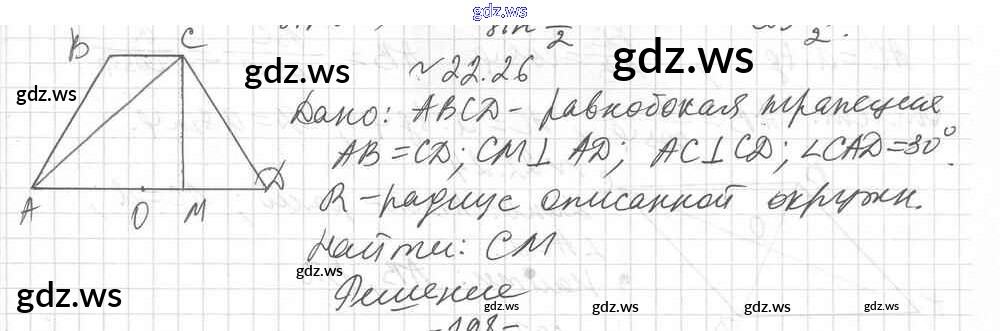 gdz.ws
sin 2 2.
~ 22.26
gdz.ws
gdz.ws
B C
gdz.ws
Дано: ABCD - равнобокая трапеция
AB = CD; CM ⊥ AD; AC ⊥ CD; ∠CAD = 30°.
R - радиус описанной окружн.
A O M D
Найти: CM
gdz.ws
Решение
gdz.ws
gdz.ws gdz.ws gdz.ws
-198-